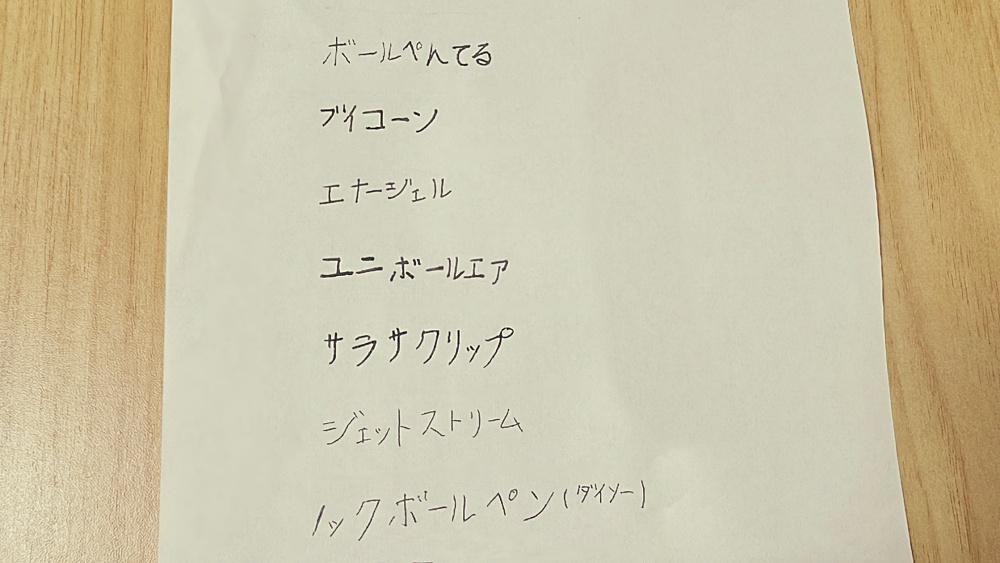 ボールぺんてる
ブイコーン
エナージェル
ユニボールエア
サラサクリップ
ジェットストリーム
ノックボールペン(ダイソー)